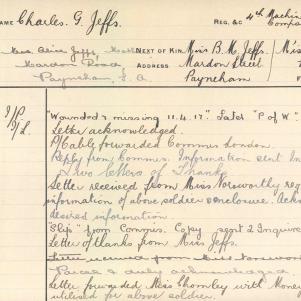 NAME Charles. G. Jeffs. REG. &C 4th Machine
Compa
Miss Alice Jeffs, NEXT OF KIN. Miss B. M. Jeffs. Mis
Mardon Road ADDRESS Mardon Street
Payneham, S.A. Payneham
"Wounded & missing 11.4.17." Later "P of W".
Letter acknowledged.
P/Cable forwarded Commrs London.
Reply from Commrs. Information sent In
& two letters of Thanks
Letter received from Miss Norsworthy reg
information of above soldier & enclosure. Ackn
desired information
"Slip" from Commrs. Copy sent 2 Inquirer
Letter of thanks from Miss Jeffs.
Letter received from Miss
& duly acknowledged
Letter forwarded Miss Chomley with Mone
for above soldier.